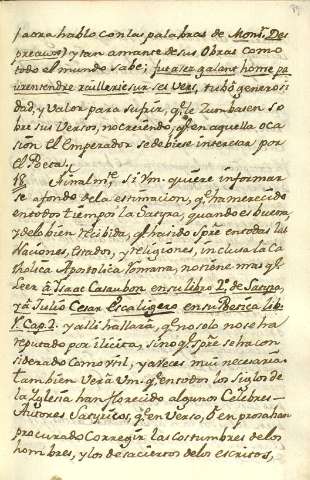 (aora hablo con las palabras de Mons. Des
preaux) y tan amante de sus Obras como
todo el mundo sabe; fue aser galant home pa
ur entendre raillerie sur ses vers, tubó generosi
dad, y valor para sufrir, qe. le Zumbasen so
bre sus Versos, no creiendo, qe. en aquella oca
sión el Emperador se debiese interesar por
el Poeta.
18. Finalmte. si Vm. quiere informar
se afondo de la estimacion, qe. ha merecido
en todos tiempos la Satyra, quando es buena,
y de lo bien recibida, qe. ha sido Spre. en todas las
Naciones, Estados, y religiones, inclusa la Ca
tholica Apostolica Romana, no tiene mas qe.
Leer à Isaac Casaubon en su libro 2º. de Satyra,
yà Julio Cesar Escaligero en su Poetica lib.
1º. Cap. 2. y alli hallarà, qe. no solo no se ha
reputado por ilicita, sino qe. Spre. se ha con
siderado como vtil, y aveces mui necesaria.
tambien verà Vm. qe. en todos los Siglos de
la Yglesia han florecido algunos Celebres
Autores Satyricos, qe. en Verso, ò en prosa han
procurado Corregir las costumbres de los
hombres, y los desaciertos de los escritos,